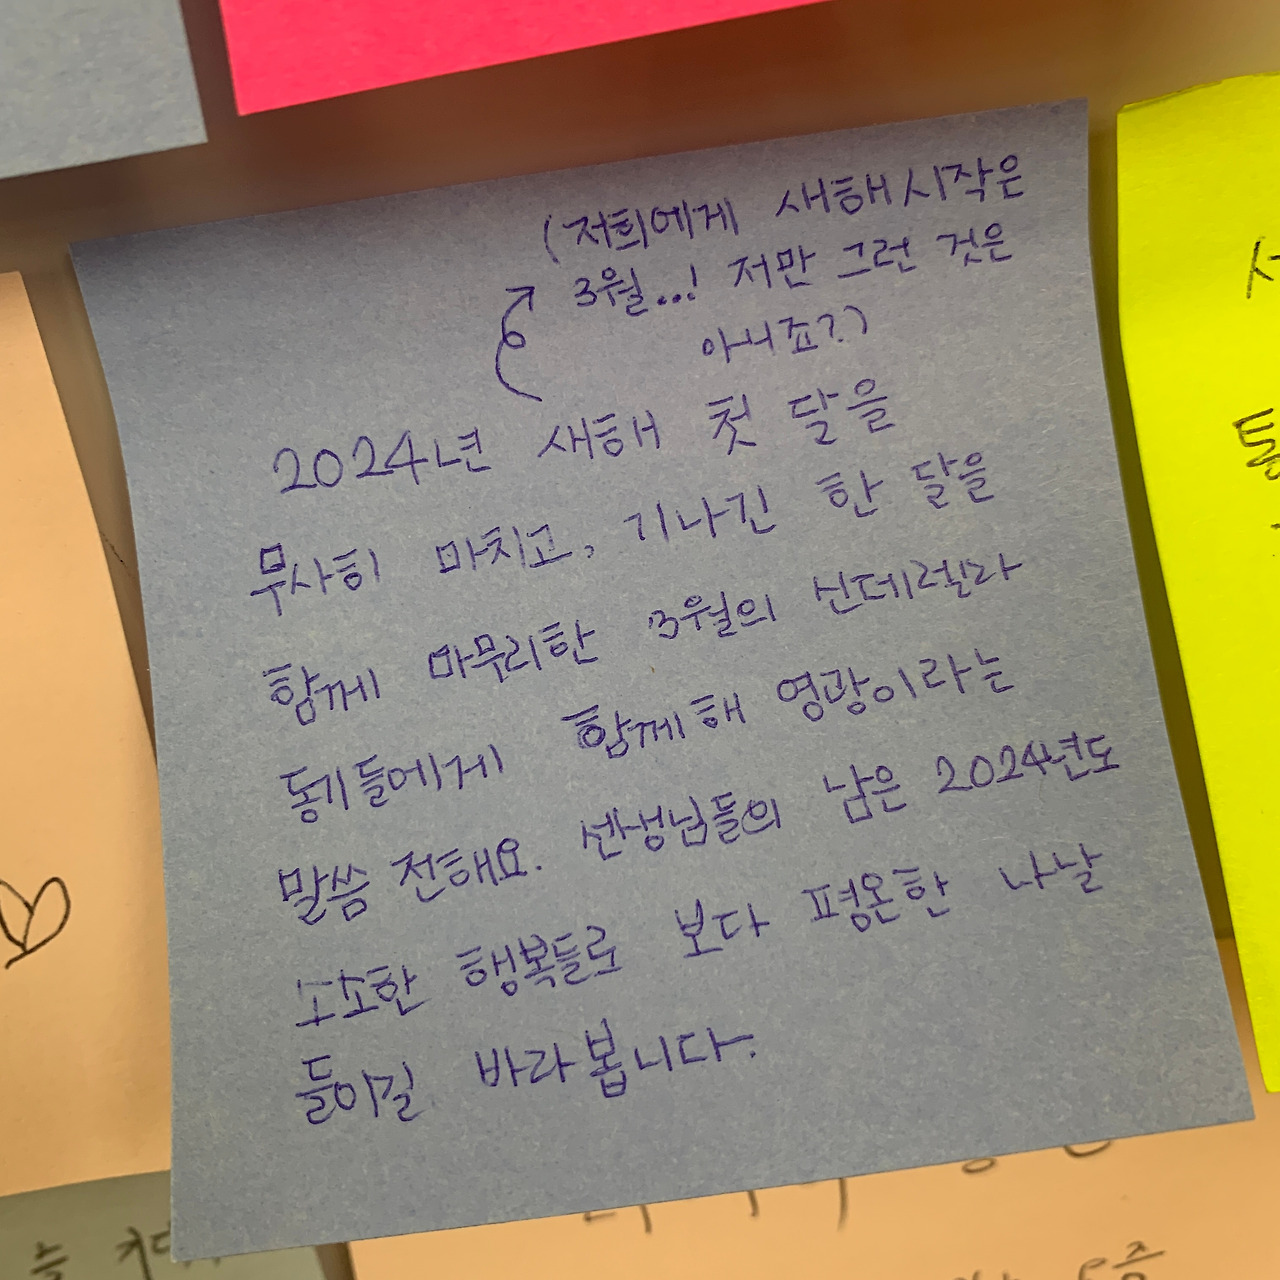 (저희에게 새해 시작은
3월...! 저만 그런 것은
아니죠?)
2024년 새해 첫 달을
무사히 마치고, 기나긴 한 달을
함께 마무리한 3월의 신데렐라
동기들에게 함께해 영광이라는
말씀 전해요. 선생님들의 남은 2024년도
소소한 행복들로 보다 평온한 나날
들이길 바라봅니다.